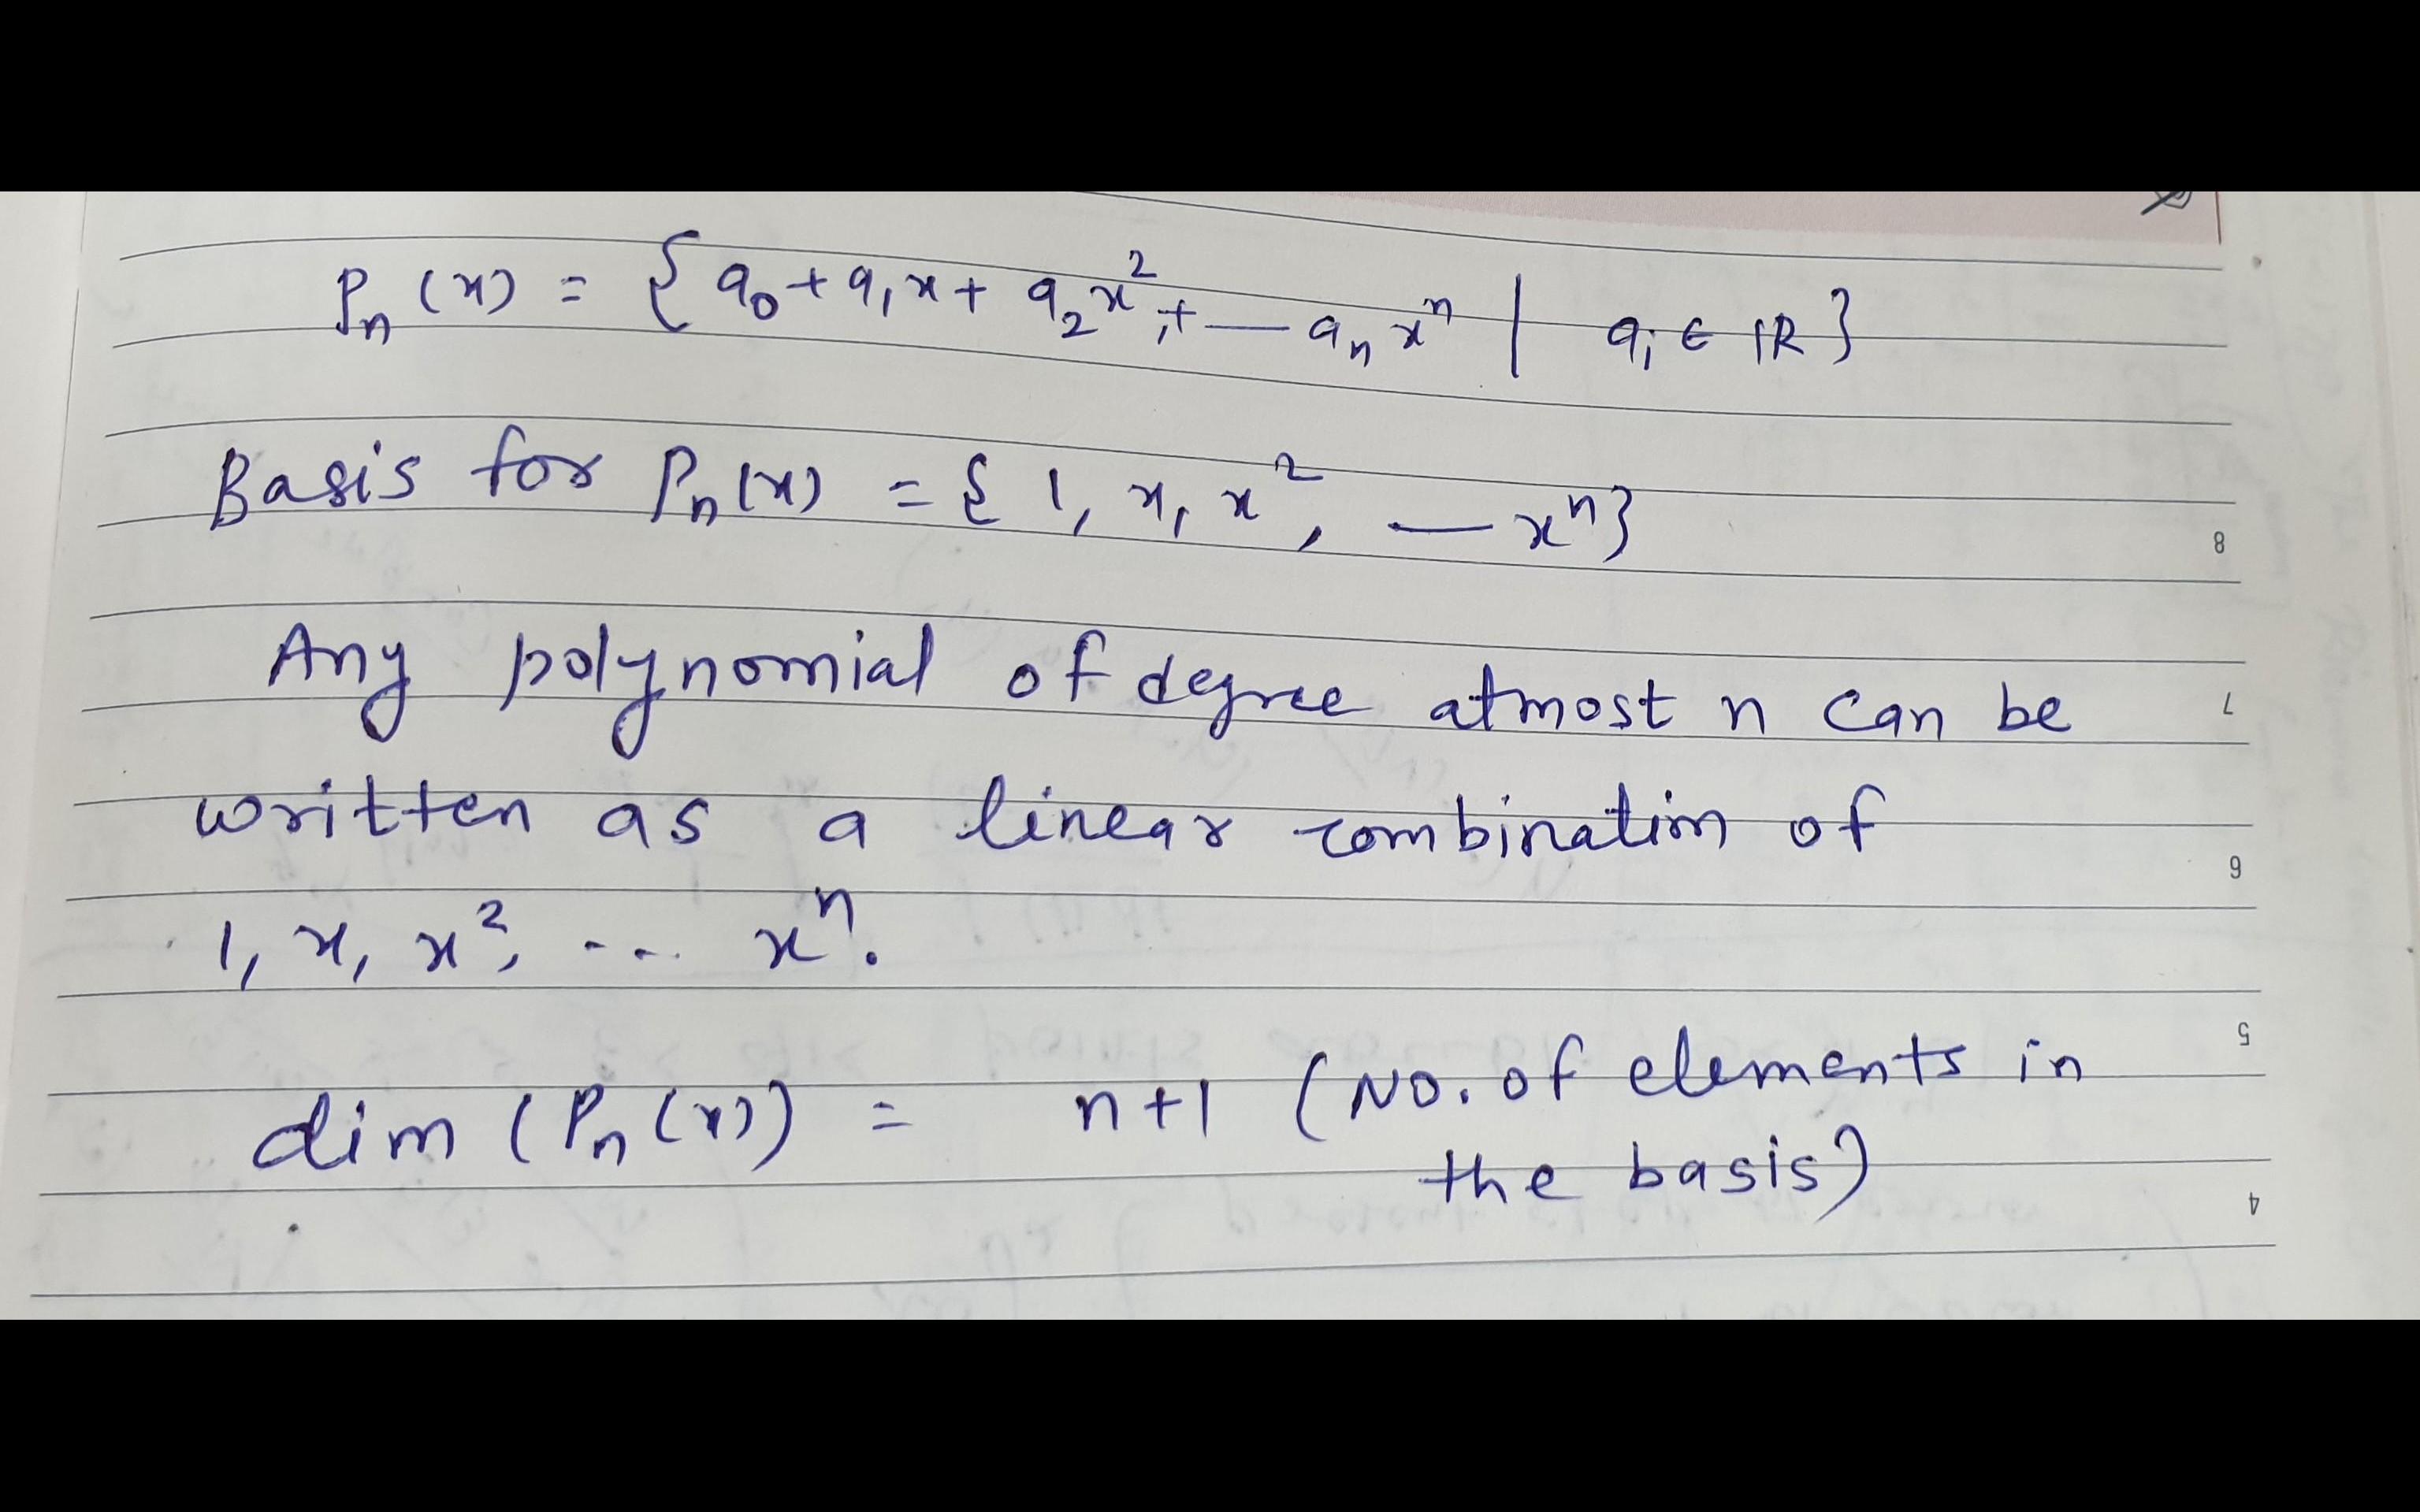 Pₙ(x) = { a₀ + a₁x + a₂x² + — aₙxⁿ | aᵢ ∈ ℝ }
Basis for Pₙ(x) = { 1, x, x², — xⁿ}
8
Any polynomial of degree atmost n can be
7
written as a linear combination of
6
1, x, x², ... xⁿ.
5
dim (Pₙ(x)) = n+1 (No. of elements in
the basis)
4